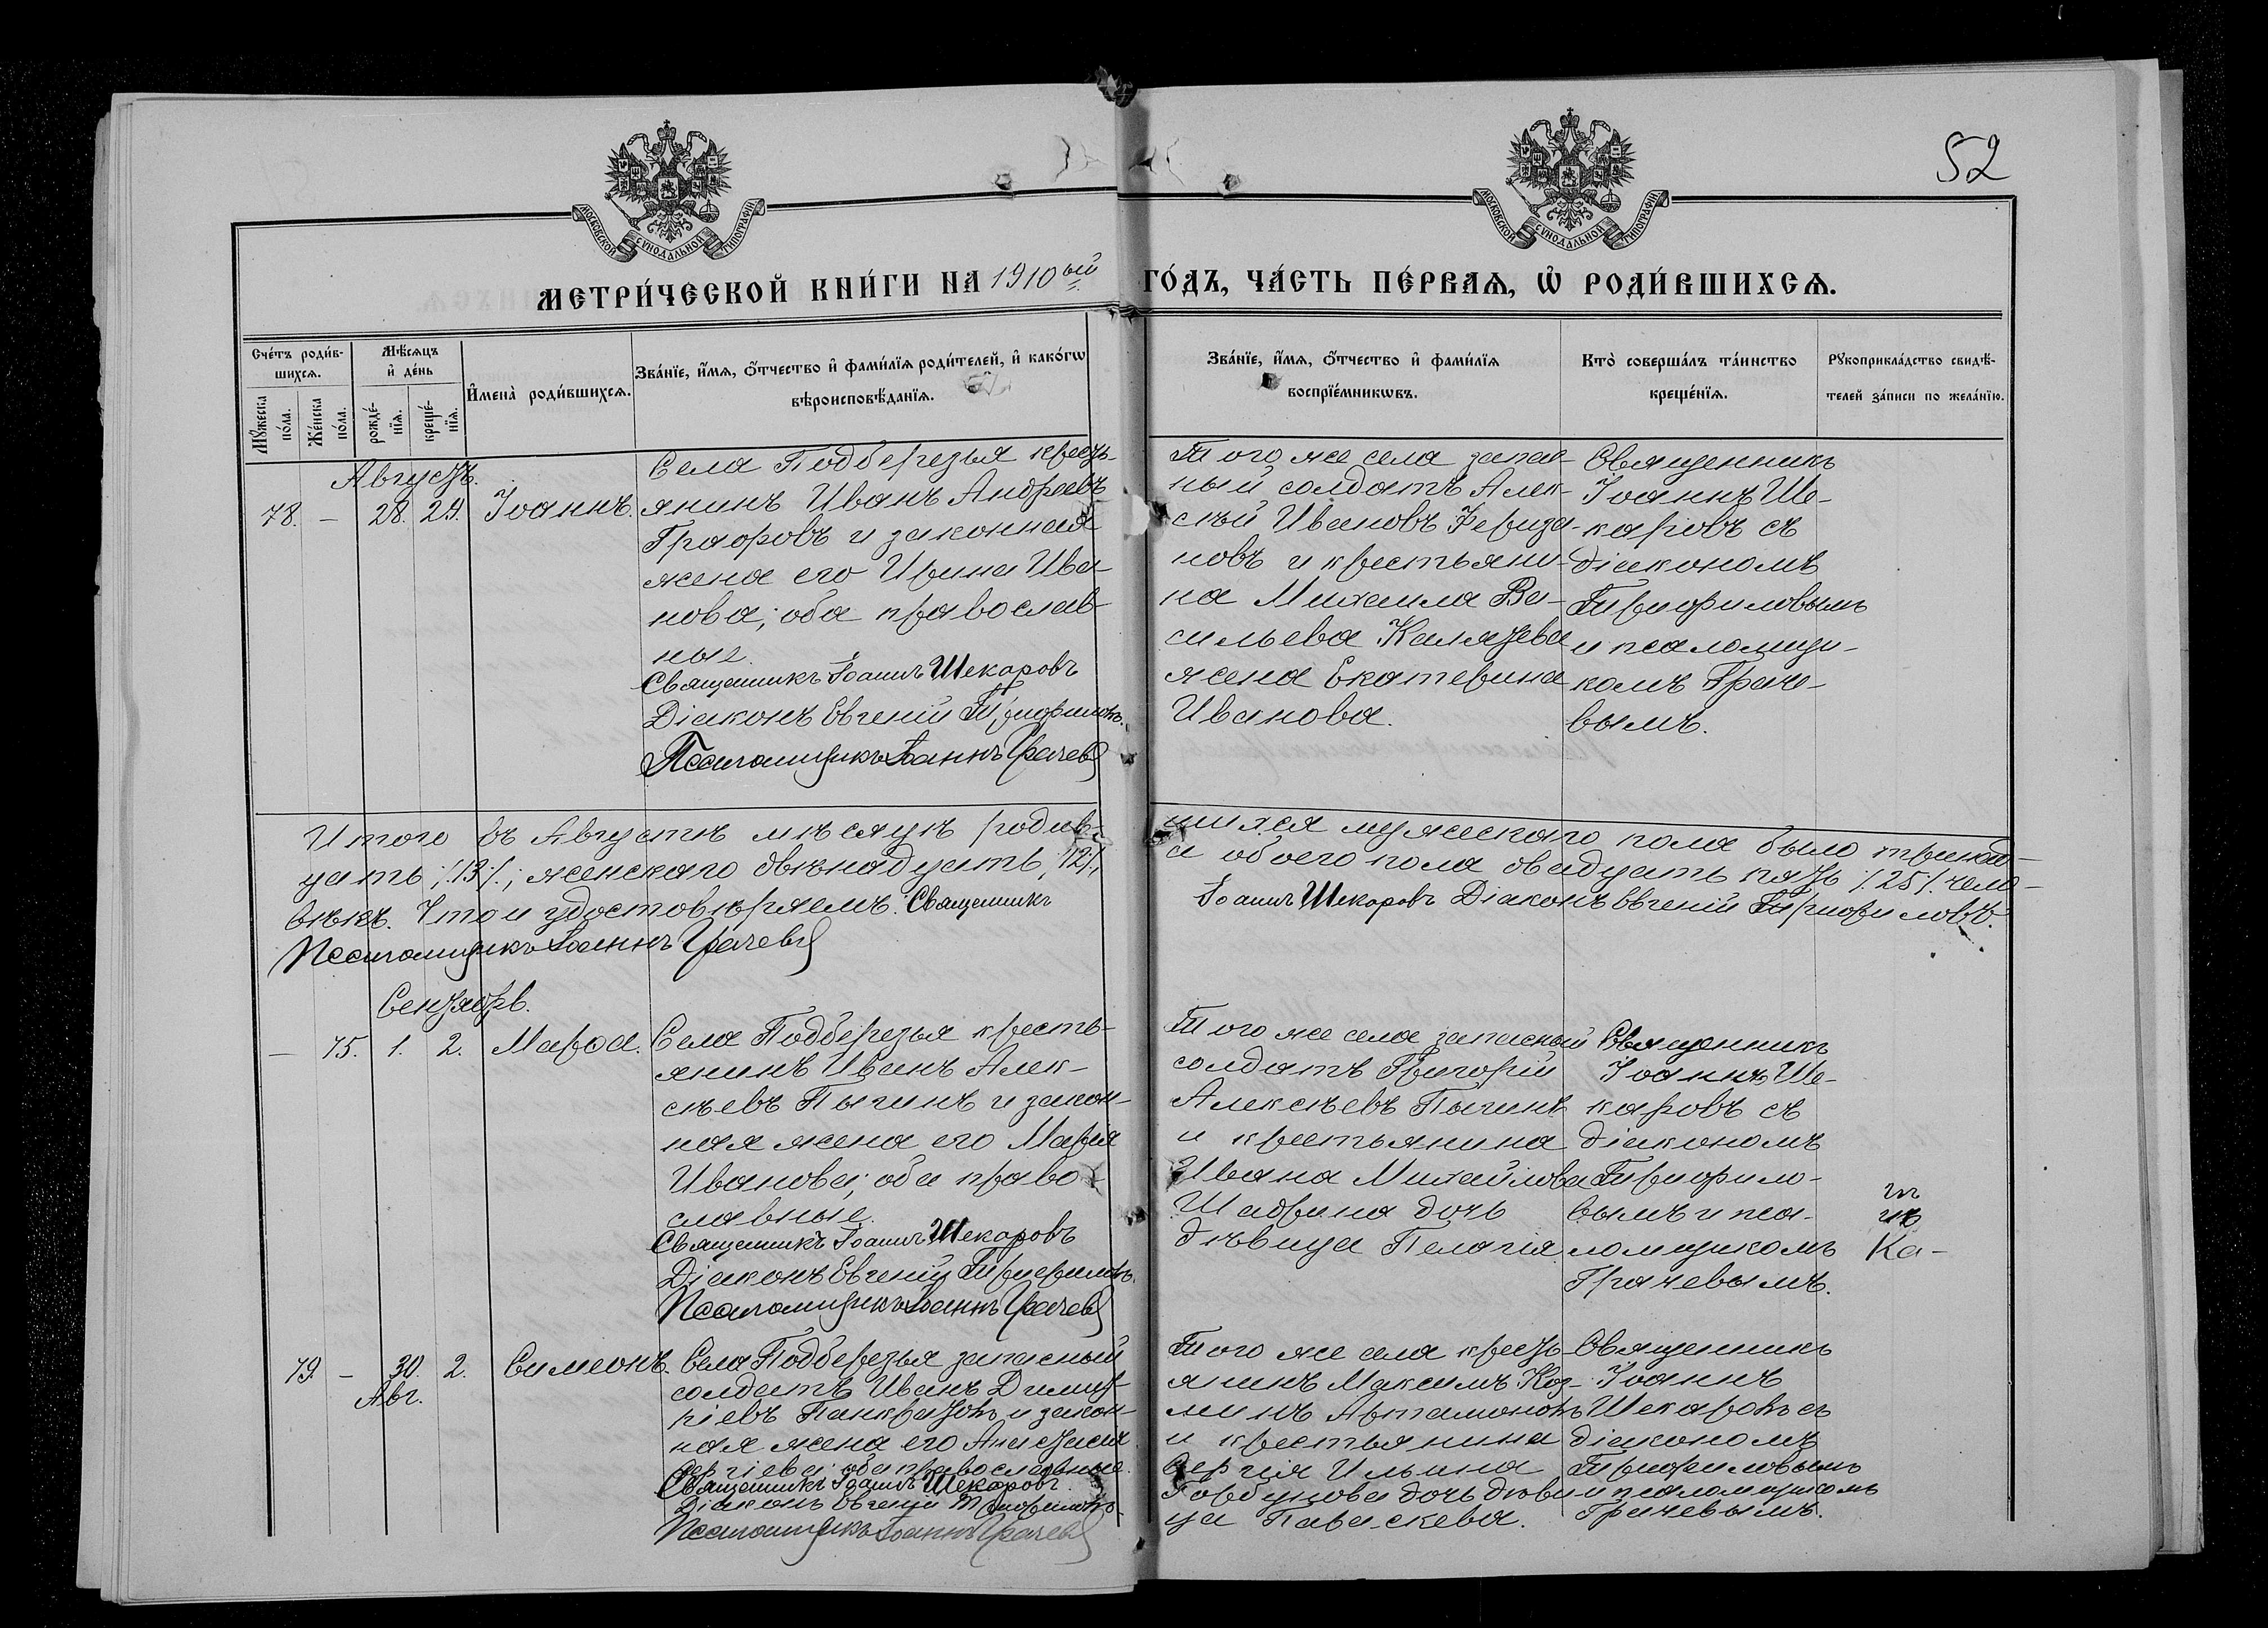 52
МОСКОВСКОЙ СѴНОДАЛЬНОЙ ТИПОГРАФІИ
МОСКОВСКОЙ СѴНОДАЛЬНОЙ ТИПОГРАФІИ
МЕТРИ́ЧЕСКОЙ КНИ́ГИ НА 1910ый ГО́ДЪ, ЧА́СТЬ ПЕ́РВАѦ, Ѡ҆ РОДИ́ВШИХСѦ.
Сче́тъ роди́в-
шихсѧ.
Мꙋ́жеска
по́ла.
Же́нска
по́ла.
Мѣ́сѧцъ
и҆ де́нь
рожде́-
нїѧ.
креще́-
нїѧ.
И҆мена̀ роди́вшихсѧ.
Зва́нїе, и҆́мѧ, ѻ҆́тчество и҆ фами́лїѧ роди́телей, и҆ како́гѡ
вѣроисповѣ́данїѧ.
Зва́нїе, и҆́мѧ, ѻ҆́тчество и҆ фами́лїѧ
воспрїе́мникѡвъ.
Кто̀ соверша́лъ та́инство
креще́нїѧ.
Рꙋкоприкла́дство свидѣ́-
телей за́писи по жела́нїю.
Августъ.
78. — 28. 29. Іоаннъ.
Села Подберезья кресть-
янинъ Иванъ Андреевъ
Графовъ и законная
жена его Ирина Ива-
нова; оба православ-
ные.
Священникъ Іоаннъ Шекаровъ
Діаконъ Евгеній Трифиловъ.
Псаломщикъ Іоаннъ Грачевъ
Того же села запас-
ный солдатъ Алек-
сѣй Ивановъ
и крестьяни-
на Михаила Ва-
сильева
жена Екатерина
Иванова.
Священникъ
Іоаннъ Ше-
каровъ съ
діакономъ
Трифиловымъ
и псаломщи-
комъ Граче-
вымъ.
Итого въ Августѣ мѣсяцѣ родив-шихся мужескаго пола было тринад-
цать /13/, женскаго двѣнадцать /12/, а обоего пола двадцать пять /25/ чело-
вѣкъ. Что и удостовѣряемъ: Священникъ Іоаннъ Шекаровъ Діаконъ Евгеній Трифиловъ.
Псаломщикъ Іоаннъ Грачевъ
Сентябрь.
— 75. 1. 2. Марѳа.
Села Подберезья кресть-
янинъ Иванъ Алек-
сѣевъ Пыгинъ и закон-
ная жена его Марія
Иванова; оба право-
славные.
Священникъ Іоаннъ Шекаровъ
Діаконъ Евгеній Трифиловъ.
Псаломщикъ Іоаннъ Грачевъ
Того же села запасный
солдатъ Григорій
Алексѣевъ Пыгинъ
и крестьянина
Ивана Михайлова
Шабрина дочь
дѣвица Пелагія
Священникъ
Іоаннъ Ше-
каровъ съ
діакономъ
Трифило-
вымъ и пса-
ломщикомъ
Грачевымъ.
Ка-
79. — 30. 2. Симеонъ.
Авг.
Села Подберезья запасный
солдатъ Иванъ Димит-
ріевъ Панкратовъ и закон-
ная жена его Анастасія
Сергіева; оба православные.
Священникъ Іоаннъ Шекаровъ.
Діаконъ Евгеній Трифиловъ
Псаломщикъ Іоаннъ Грачевъ
Того же села кресть-
янинъ Максимъ Коз-
минъ Артамоновъ
и крестьянина
Сергія Ильина
Горбунова дочь дѣви-
ца Параскева.
Священникъ
Іоаннъ
Шекаровъ съ
діакономъ
Трифиловымъ
и псаломщикомъ
Грачевымъ.